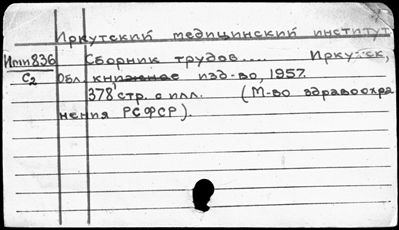 Иркутский медицинский институт
Ити836 Сборник трудов.... Иркутск,
С2 Обл. книжное изд-во, 1957.
378 стр. с илл. (М-во здравоохра
нения РСФСР).